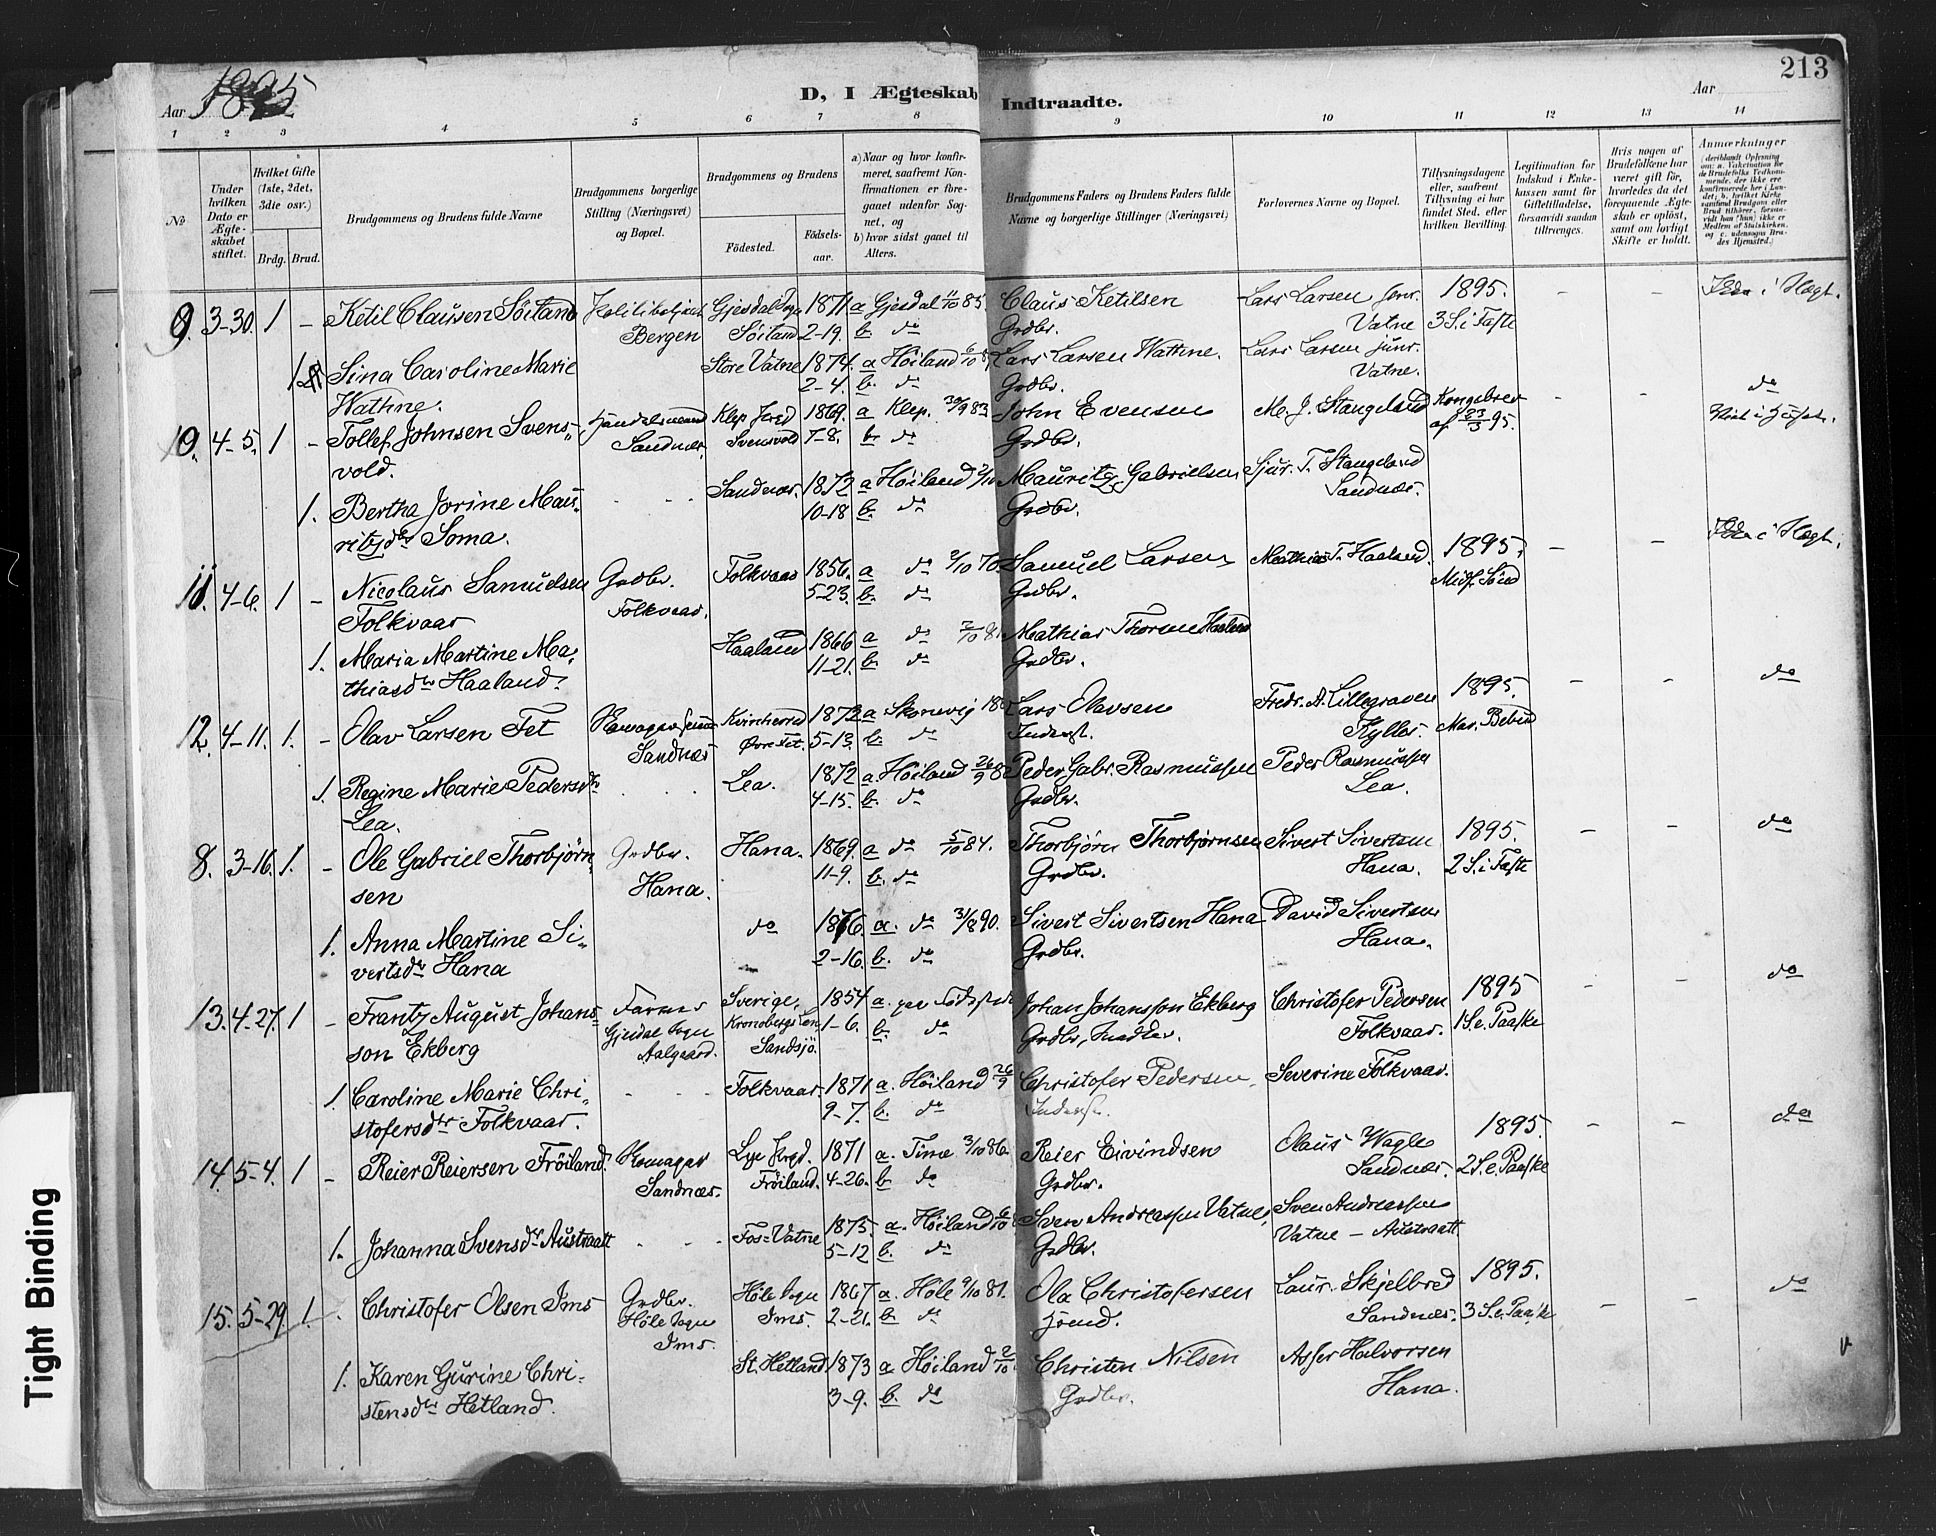 213
Aar 1895
D, I Ægteskab Indtraadte.
Aar
1 2 3 4 5 6 7 8 9 10 11 12 13 14
No
Under hvilken Dato er Ægteskabet stiftet.
Hvilket Gifte (1ste, 2det, 3die osv.)
Brdg. Brud.
Brudgommens og Brudens fulde Navne
Brudgommens borgerlige Stilling (Næringsvei) og Bopœl.
Brudgommens og Brudens
Födested.
Födselsaar.
a) Naar og hvor konfirmeret, saafremt Konfirmationen er foregaaet udenfor Sognet, og
b) hvor sidst gaaet til Alters.
Brudgommens Faders og Brudens Faders fulde Navne og borgerlige Stillinger (Næringsvei)
Forlovernes Navne og Bopœl.
Tillysningsdagene eller, saafremt Tillysning ei har fundet Sted, efter hvilken Bevilling.
Legitimation for Indskud i Enkekassen samt for Giftetilladelse, forsaavidt saadan tiltrænges.
Hvis nogen af Brudefolkene har været gift før, hvorledes da det foregaaende Ægteskab er oplöst, samt om lovligt Skifte er holdt.
Anmærkninger
9. 3-30. 1 - Ketil Claussen Söiland
Bergen
Gjesdal Sogn Söiland
1871 2-19.
a Gjesdal 11/10 85.
b. do
Claus Ketilsen Grdbr.
Lars Larsen senr. Vatne
1895. 3 S. i Faste
- -
1 Sina Caroline Marie Wathne.
Store Vatne
1874. 2-4.
a Höiland
b. do
Lars Larsen Wathne. Grdbr.
Lars Larsen junr. Vatne.
do
10. 4-5. 1 - Tollef Johnsen Svensvold.
Handelsmand Sandnæs.
Klep Svensvold
1869. 7-8.
a Klep. 30/9 83
b. do
John Evensen Grdbr.
M. J. Stangeland
Kongebrev af 23/3 95.
- -
1. Bertha Jorine Mauritzdtr Soma.
Sandnæs.
1872 10-18
a Höiland
b. do
Mauritz Gabrielsen Grdbr.
Sjur. T. Stangeland Sandnæs.
11. 4-6. 1 - Nicolaus Samuelsen Folkvaar
Grdbr. Folkvaar.
Folkvaar
1856. 5-23.
a do 2/10 70.
b. do
Samuel Larsen Grdbr.
Mathias T. Haaland.
1895. Midf. Sönd
- -
1. Maria Martine Mathiasdtr Haaland.
Haaland
1866 11-21.
a do
b. do
Mathias Thorsen Haaland Grdbr.
do
12. 4-11. 1. - Olav Larsen Fet
Sandnæs
Kvinherred Øvre Fet.
1872 5-13.
a Skonevig
b. do
Lars Olavsen Inderst.
Fredr. A. Lillegraven Kylles.
1895. Mar. Bebud
- -
1. Regine Marie Pedersdtr Lea.
Lea.
1872 4-15.
a. Höiland
b. do
Peder Gabr. Rasmussen Grdbr.
Peder Rasmussen Lea.
do
8. 3-16. 1. - Ole Gabriel Thorbjörnsen
Grdbr. Hana.
Hana.
1869. 11-9.
a do 5/10 84.
b. do
Thorbjörn Thorbjørnsen Grdbr.
Sivert Sivertsen Hana.
1895. 2 S. i Faste
- -
1. Anna Martine Sivertsdtr Hana
do
1876. 2-16.
a. do 31/8 90.
b. do
Sivert Sivertsen Hana Grdbr.
David Sivertsen Hana.
do
13. 4-27. 1 - Frantz August Johansson Ekberg
Farver Gjesdal Sogn Aalgaard.
Sverige, Kronobergs Len Sandsjö.
1854 1-6.
a.
b. do
Johan Johansson Ekberg Grdbr,
Christofer Pedersen Folkvaar.
1895 1 S. e. Paaske
- -
1. Caroline Marie Christofersdtr Folkvaar.
Folkvaar.
1871 9-7.
a. Höiland 26/9
b. do
Christofer Pedersen, Inderst.
Severine Folkvaar.
do
14. 5-4. 1 - Reier Reiersen Fröiland.
Sandnæs.
Lye Fröiland.
1871 4-26.
a. Time 3/10 86.
b. do
Reier Eivindsen Grdbr.
Olaus Wagle Sandnæs.
1895. 2 S. e. Paaske
- -
1. Johanna Svensdtr Austraatt
Fos-Vatne
1875. 5-12
a. Höiland
b. do
Sven Andreassen Vatne, Grdbr.
Sven Andreassen Vatne - Austraatt
15. 5-29. 1. Christofer Olsen Ims
Grdbr. Höle Sogn Ims.
Höle Sogn Ims.
1867 2-21.
a. Höle 9/10 81.
b. do
Ola Christofersen
Laur. Skjelbred Sandnæs.
1895. 3 S. e. Paaske
- -
do
1. Karen Gurine Christensdtr Hetland.
St. Hetland
1873 3-9.
a. Höiland 2/10
b. do
Christen Nilsen Grdbr.
Asser Halvorsen Hana.
Tight Binding